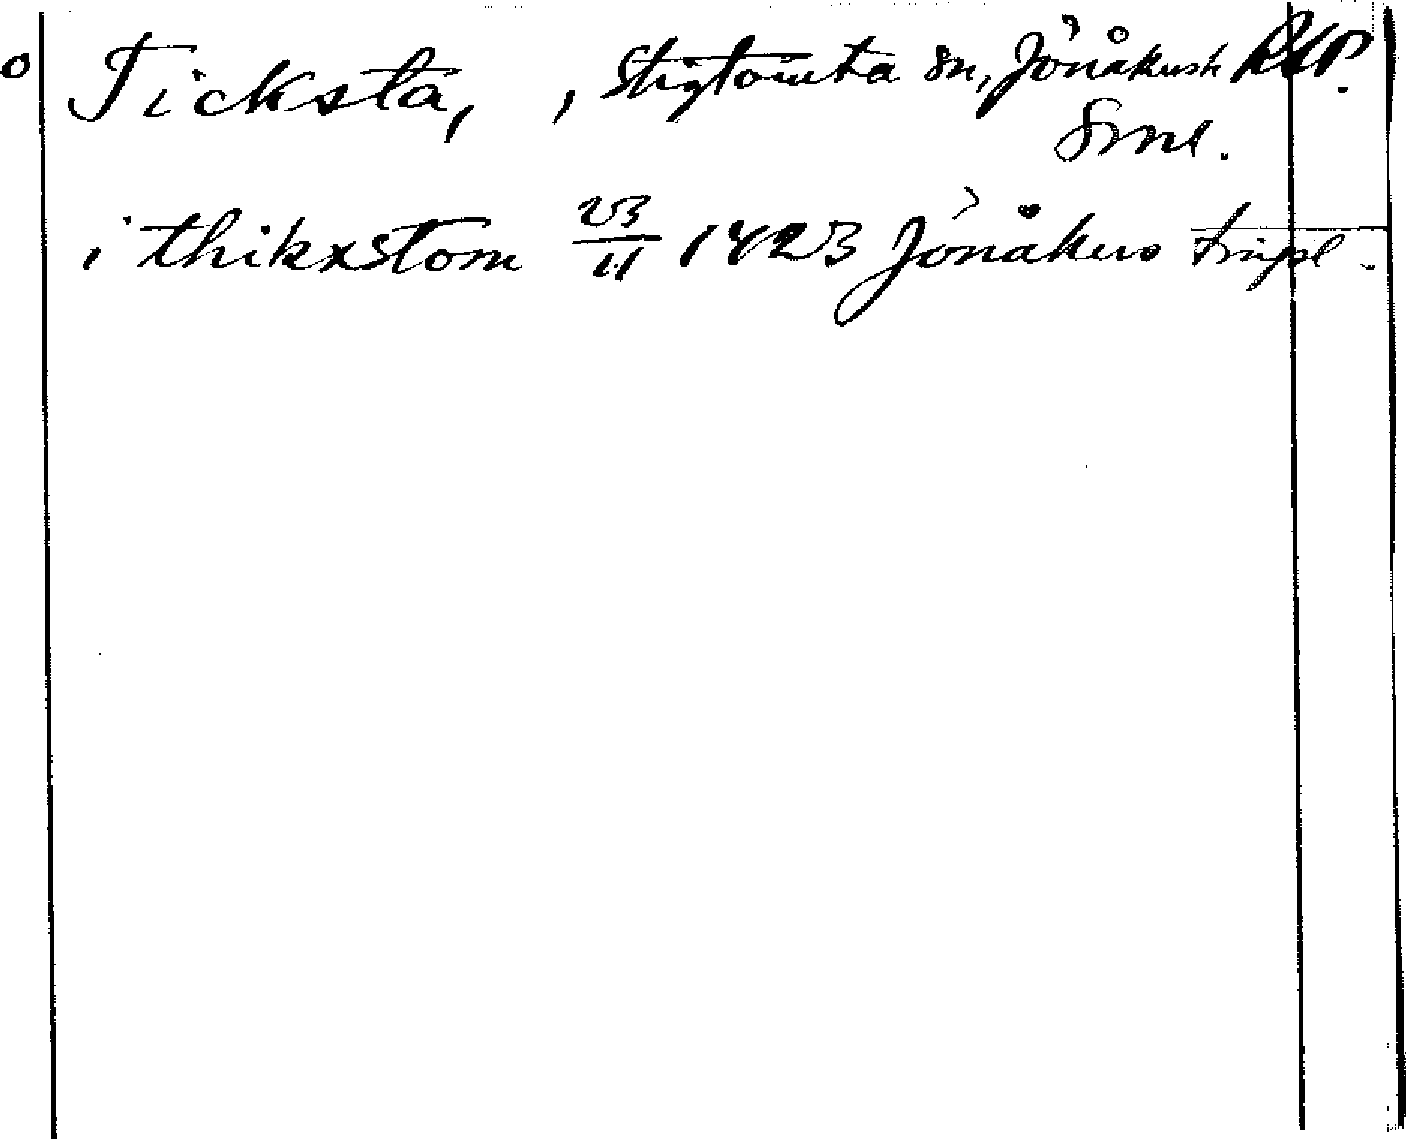 Ticksta, , Stigtomta sn, Jönåkersh
Srml.
i thikxstom 23/11 1423 Jönåkers